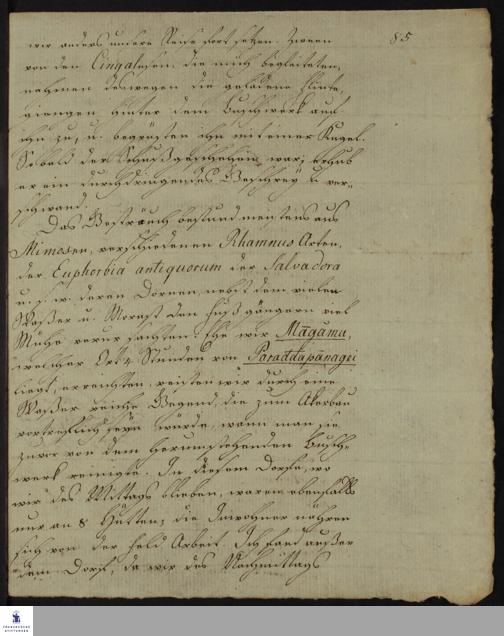 85
wir anders unsere Reise fort setzen. Zween
von den Cingalesen, die mich begleiteten,
nahmen deswegen die geladene Flinte,
giengen hinter dem Buschwerk auf
ihn zu, u. begrüsten ihn mit einer Kugel.
So bald der Schuß geschehen war, erhub
er ein durchdringendes Geschrey u. ver-
schwand.
Das Gesträuch bestund meistens aus
Mimosen, verschiedenen Rhamnus Arten,
der Euphorbia antiquorum der Salvadora
u. s. w. deren Dornen, nebst dem vielen
Waßer u. Morast den Fuß gängern viel
Mühe verursachten. Ehe wir Magama,
welcher Ort 4 Stunden von Paraddapanagii
liegt, erreichten, reisten wir durch eine
Waßer reiche Gegend, die zum Akerbau
vortreflich seyn würde, wann man sie
zuvor von dem herumstehenden Busch-
werk reinigte. In diesem Dorfe, wo
wir des Mittags blieben, waren ebenfalls
nur an 8 Hütten; die Inwohner nähren
sich von der Feld Arbeit. Ich fand außer
dem Dorf, da wir des Nachmittags
FRANCKESCHE
STIFTUNGEN